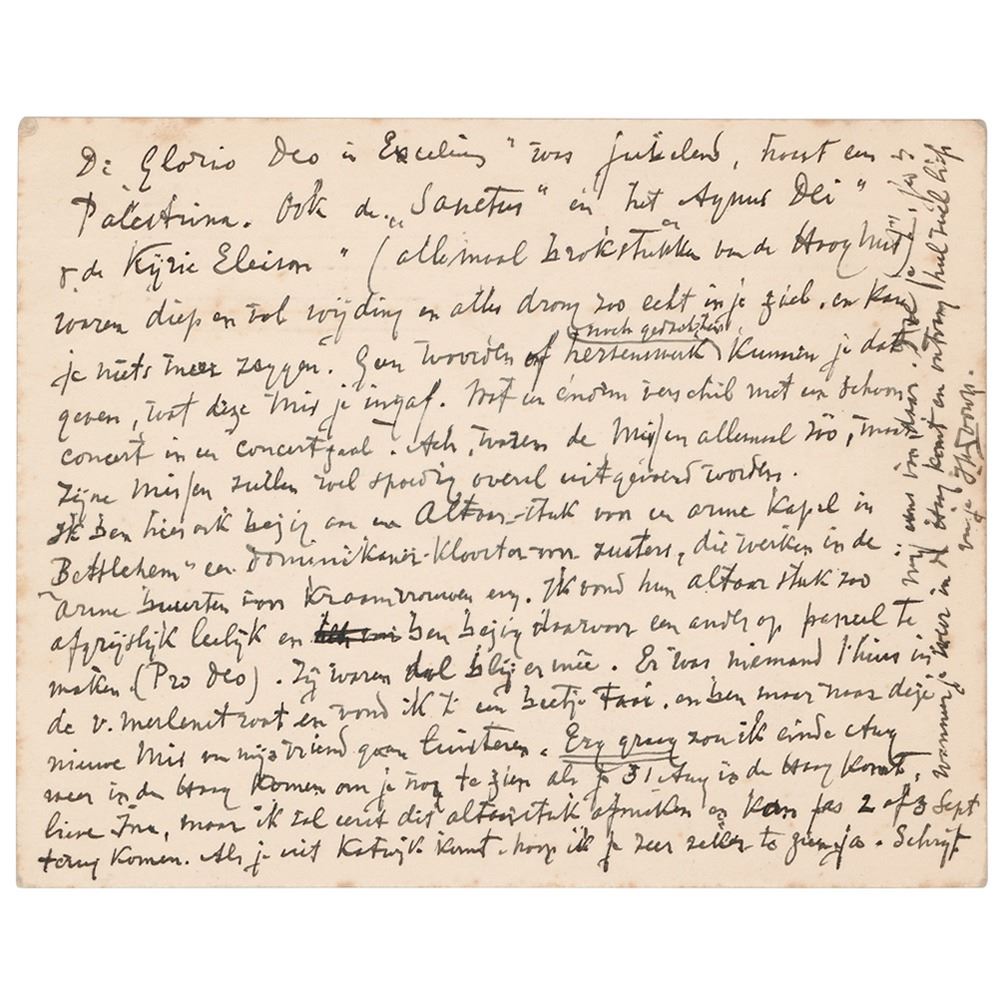 De Gloria Deo in Excelsius" was jubelend, haast een
Palestrina. Ook de „Sanctus" en het Agnus Dei"
& de Kÿrie Eleison" (allemaal brokstukken van de Hoog Mis)"
waren diep en vol wijding en alles drong zoo echt in je ziel. en kan
je niets meer zeggen. Geen woorden of hersenwerk (noch gedachten) kunnen je dat
geven, wat deze Mis je ingaf. Wat een énorm verschil met een schoon
concert in een concertzaal. Ach, waren de Missen allemaal zóó, maar
zijne Missen zullen wel spoedig overal uitgevoerd worden.
Ik ben hier ook bezig aan een Altaar-stuk voor een arme Kapel in
Bethlehem" een Dominikaner-Klooster voor zusters, die werken in de
arme buurten voor Kraamvrouwen enz. Ik vond hun altaarstuk zoo
afgrijslijk leelijk en ben bezig daarvoor een ander op paneel te
maken. (Pro Deo). Zij waren dol blij ermee. Er was niemand thuis in
de v. Merlenstraat en vond ik 't een beetje saai. en ben maar naar deze
nieuwe Mis van mijn vriend gaan luisteren. Erg graag zou ik einde Aug
weer in den Haag komen om je nog te zien als je 31 Aug in de Haag komt,
lieve Ina, maar ik zal eerst dit altaarstuk afmaken en kan pas 2 of 3 Sept
terug komen. Als je uit Katwijk komt hoop ik je zeer zeker te zien ja. Schrijf
mij eens van daar.
wanneer je weer in de Haag komt en ontvang heel veel liefs
van je